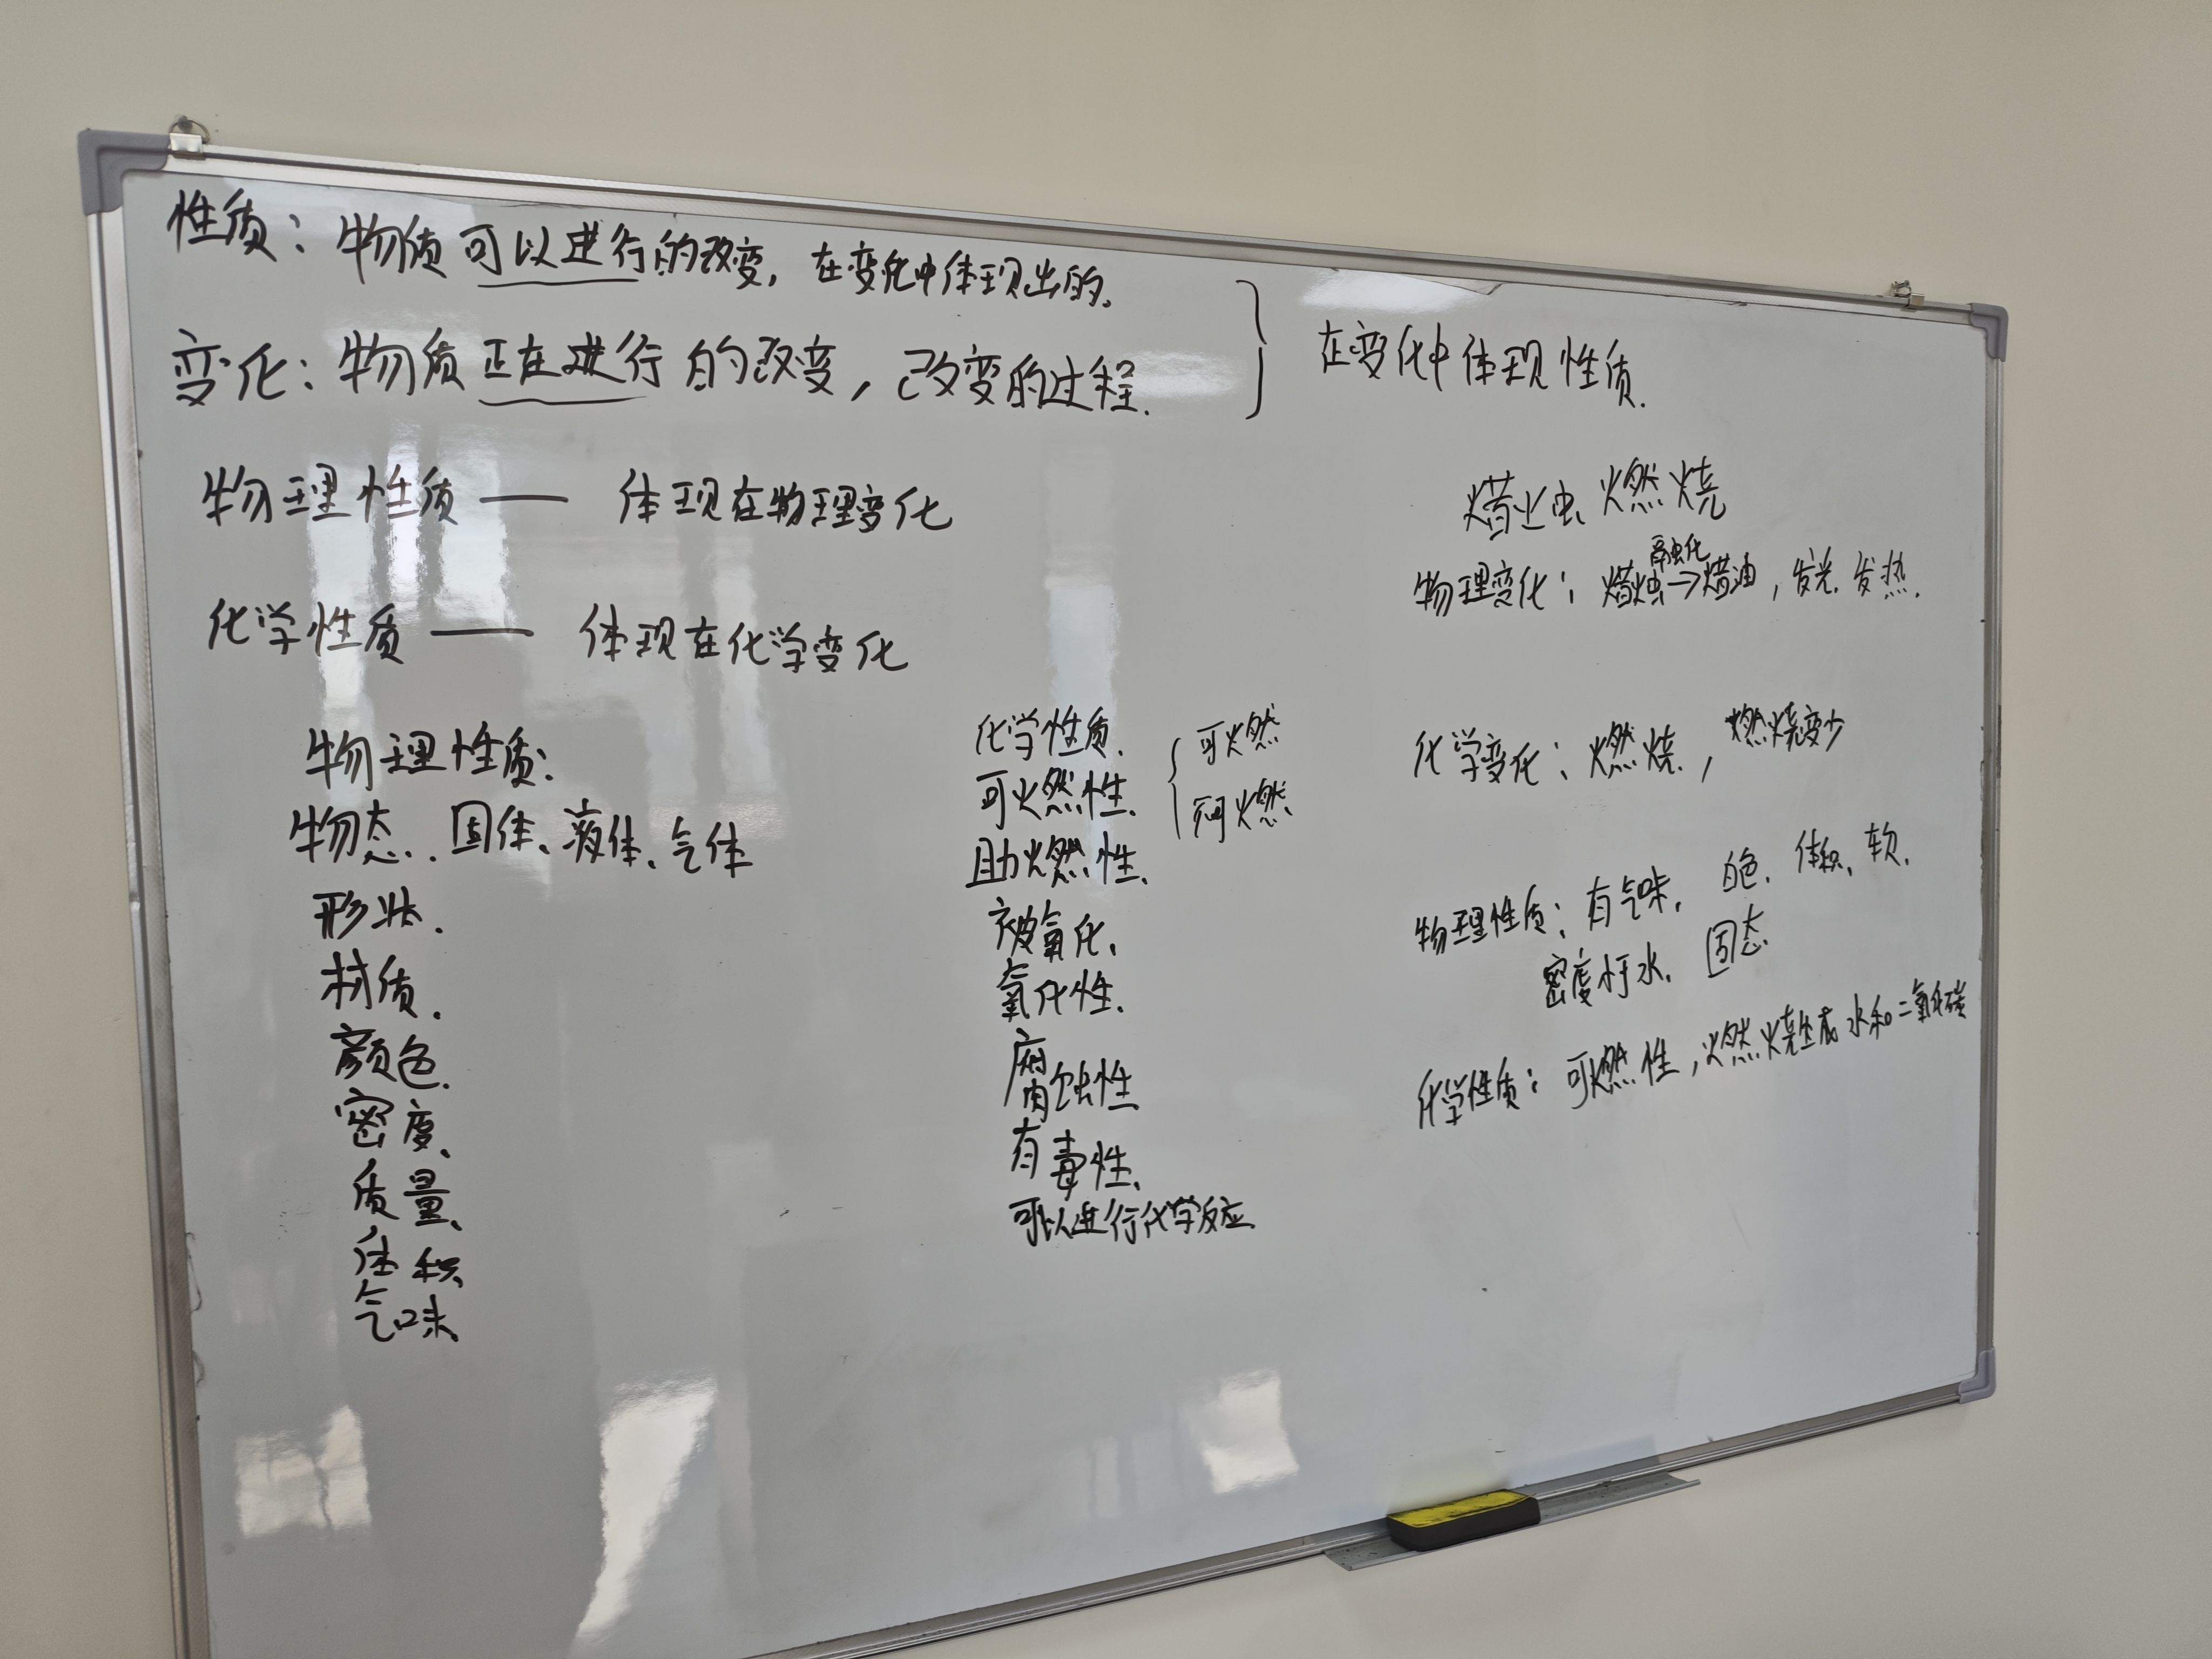 性质：物质可以进行的改变，在变化中体现出的。
变化：物质正在进行的改变，改变的过程.
在变化中体现性质.
物理性质—— 体现在物理变化
化学性质—— 体现在化学变化
物理性质:
物态.. 固体、液体、气体
形状.
材质.
颜色.
密度、
质量、
体积、
气味、
化学性质.
可燃性.
助燃性.
可燃
不可燃
被氧化、
氧化性.
腐蚀性
有毒性.
可以进行化学反应.
蜡烛燃烧
融化
物理变化：蜡烛→蜡油，发光.发热.
化学变化：燃烧，燃烧变少
物理性质：有气味. 白色. 体积. 软.
密度小于水. 固态
化学性质：可燃性，燃烧生成水和二氧化碳